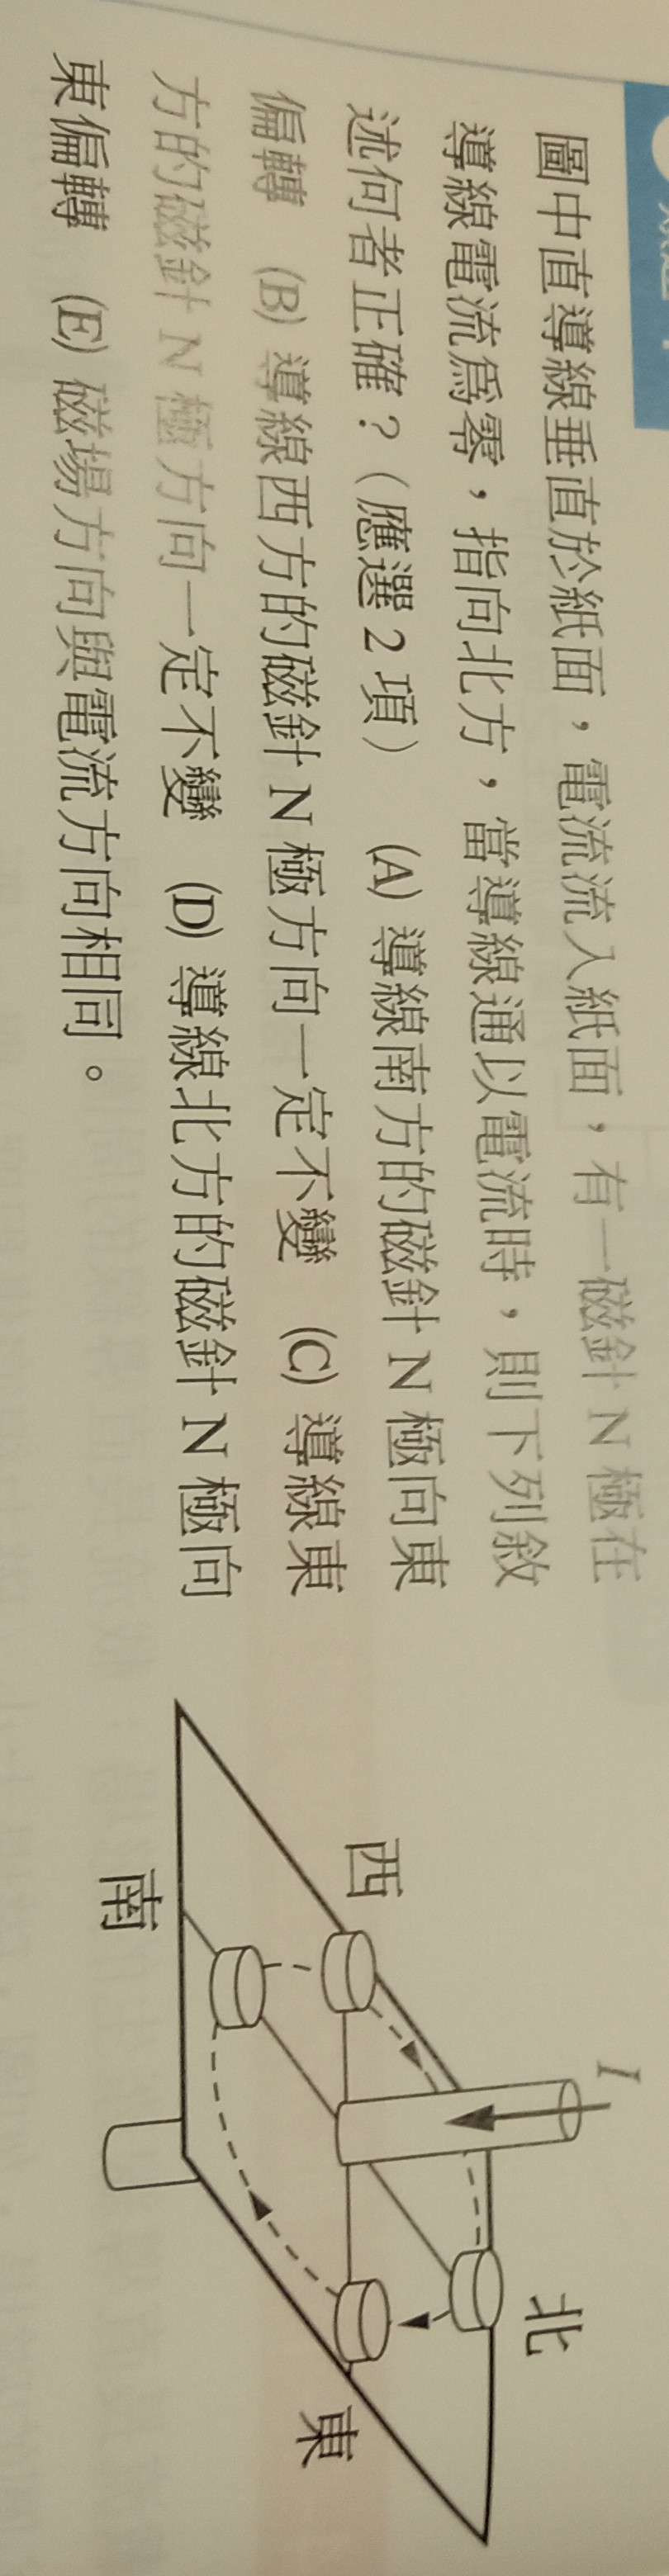 圖中直導線垂直於紙面，電流流入紙面，有一磁針 N 極在
導線電流為零，指向北方，當導線通以電流時，則下列敘
述何者正確？（應選 2 項） (A) 導線南方的磁針 N 極向東
偏轉 (B) 導線西方的磁針 N 極方向一定不變 (C) 導線東
方的磁針 N 極方向一定不變 (D) 導線北方的磁針 N 極向
東偏轉 (E) 磁場方向與電流方向相同。
I
北
西
東
南